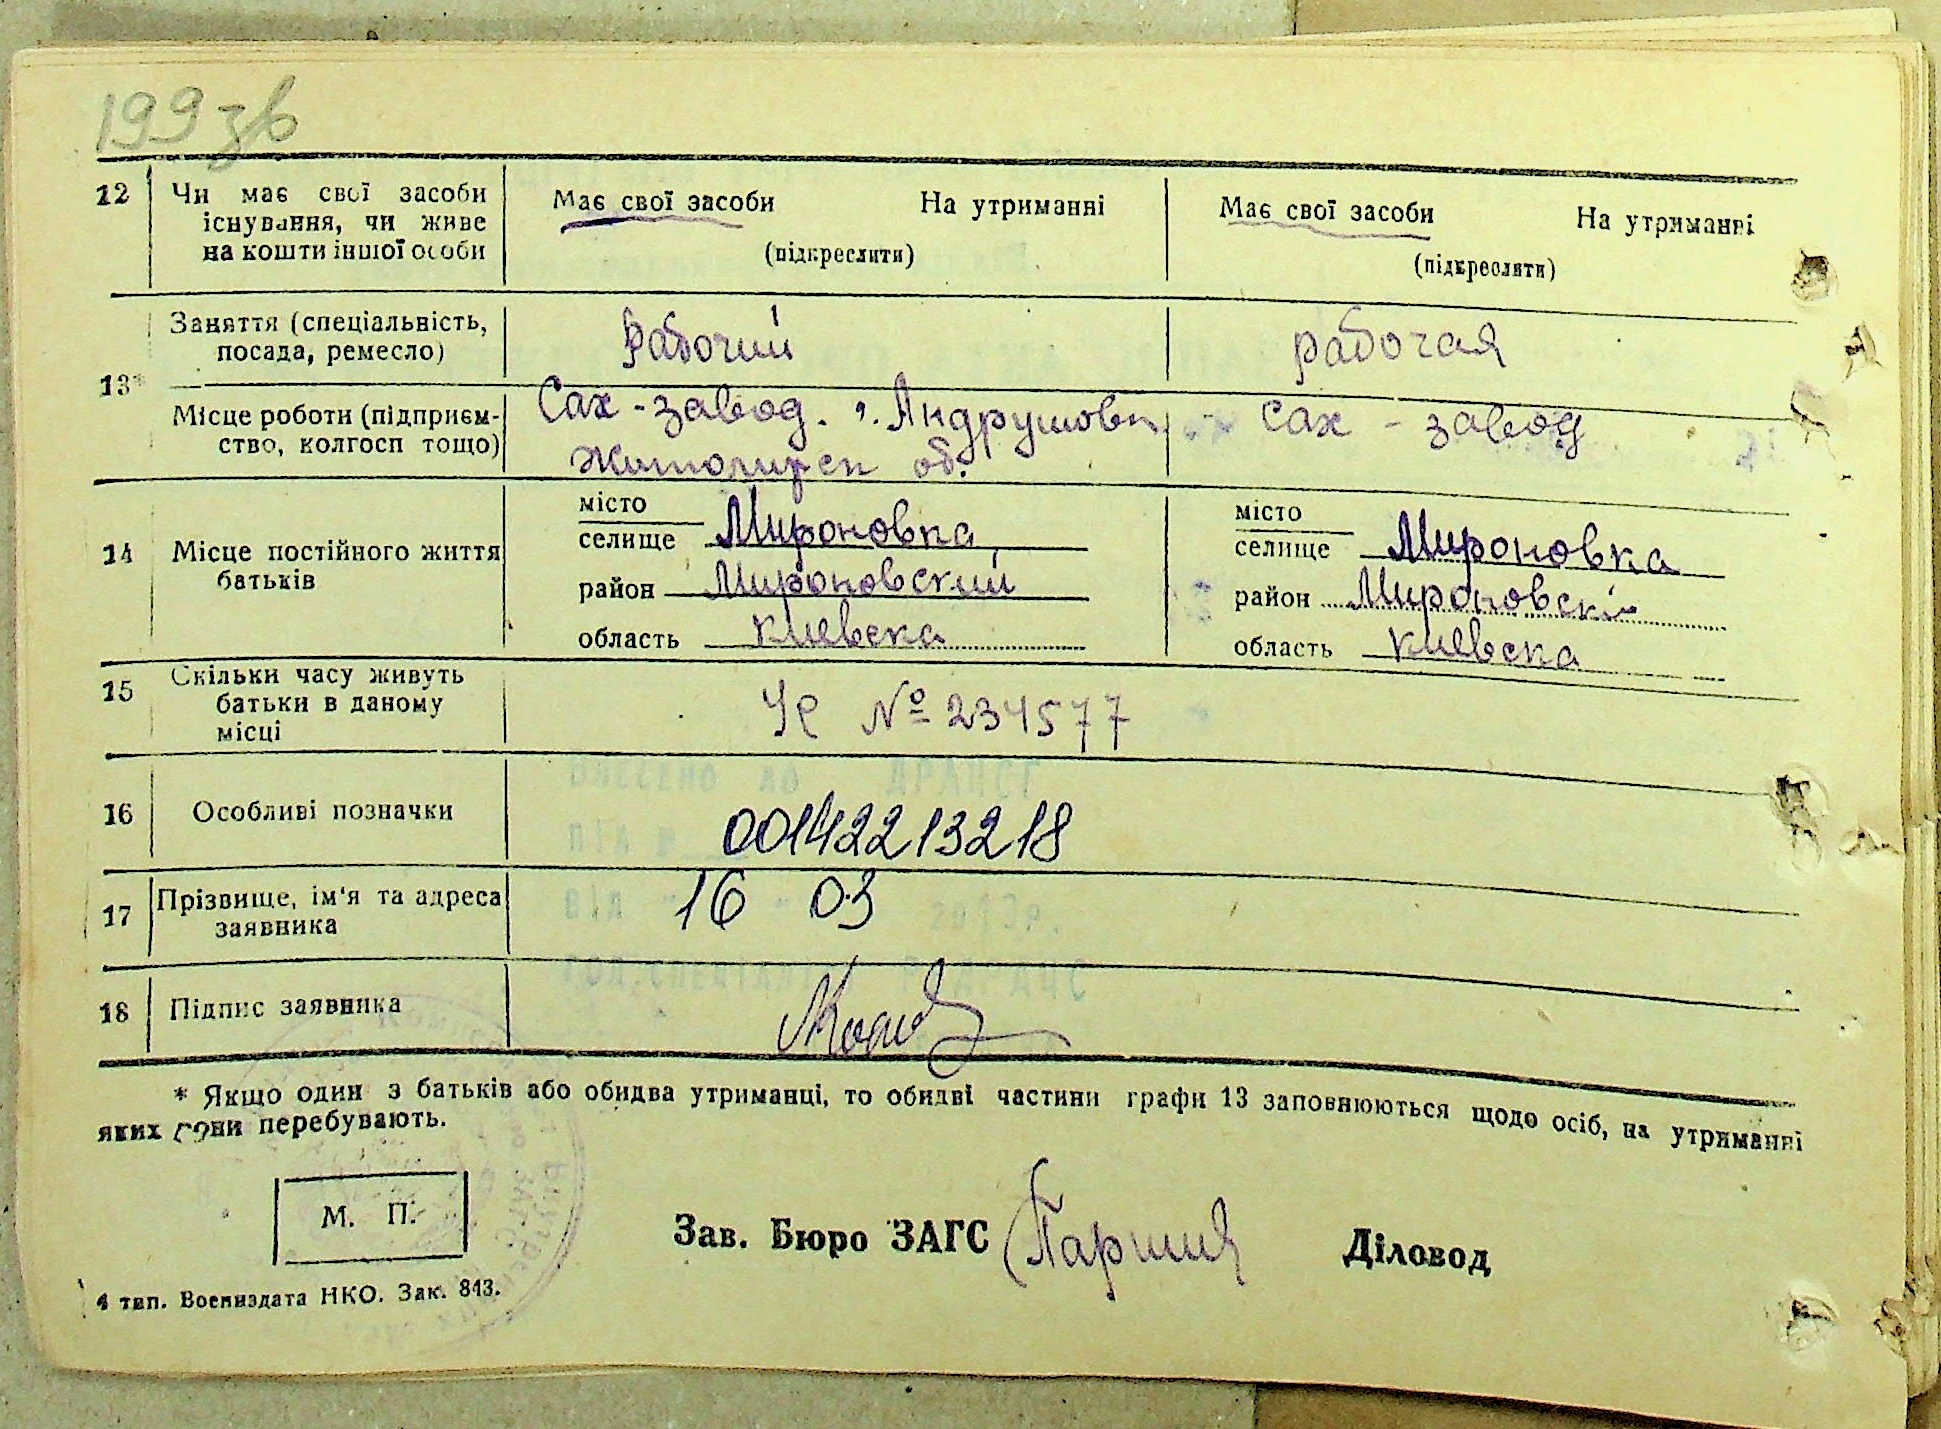 199 зв
12 Чи має свої засоби існування, чи живе на кошти іншої особи
Має свої засоби На утриманні
(підкреслити)
Має свої засоби На утриманні
(підкреслити)
13*
Заняття (спеціальність, посада, ремесло)
Рабочий
рабочая
Місце роботи (підприєм-
ство, колгосп тощо)
Сах-завод. г. Андрушовк
Житомирск об.
Сах - завод
14 Місце постійного життя батьків
місто
селище Мироновка
район Мироновский
область Киевска
місто
селище Мироновка
район Мироновскі
область Киевска
15 Скільки часу живуть батьки в даному місці
№ 234577
16 Особливі позначки
00142213218
17 Прізвище, ім'я та адреса заявника
16 03
Внесено до ДРАЦСГ
від 2013р.
18 Підпис заявника
* Якщо один з батьків або обидва утриманці, то обидві частини графи 13 заповнюються щодо осіб, на утриманні
яких вони перебувають.
М. П.
Зав. Бюро ЗАГС
Діловод
4 тип. Воениздата НКО. Зак. 843.